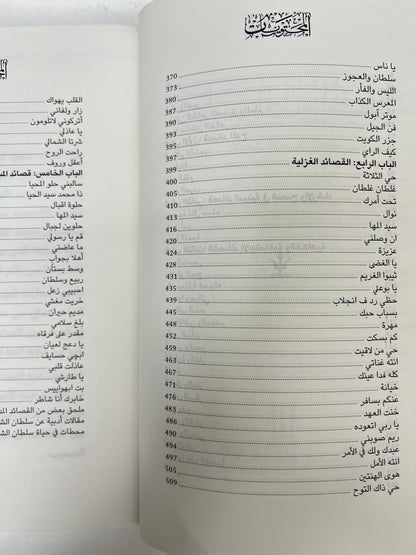 المختوبات
يا ناس 370
سلطان والعجوز 373
الليس والفأر 387
المعرس الكذاب 390
موتر أبول 393
فن الجيل 395
جزر الكويت 397
كيف الراي 399
الباب الرابع: القصائد الغزلية
حي الثلاثة 400
غلطان غلطان 403
تحت أمرك 405
نوال 416
سيد المها 420
ان وصلني 422
عزيزة 424
يا الغضى 427
ثيبوا الغريم 431
يا بوعلي 434
حظي رد ف انجلاب 437
بسباب حبك 441
مهرة 442
كم بسكت 450
حي من لاقيت 452
انته غناتي 459
كله فدا عينك 464
خيانة 470
عذكم بسافر 476
خنت العهد 483
يا ربي اتعوده 486
ريم صوبني 491
عبدك ولك في الأمر 494
انته الأمل 497
هوى الهنتين 505
حي ذاك التوح 509
القلب يهواك
زار ولفاني
أتركوني لاتلومون
يا عاذلي
شرتا الشمالي
راحت الروح
أعقل وروف
الباب الخامس: قصائد
سالبني حلو المحيا
يا محمد سيد الحيا
حلوة اقبال
سيد المها
حلوين لجبال
قم يا رسولي
ما عاضني
أهلا بجواب
وسط بستان
ربيع وسلطان
احبيبي زعل
خريت مغشي
مديم حيران
بلغ سلامي
مقدر على فرقاه
يا دعج لعيان
ابجي حسايف
عاذلت قلبي
يا طارشي
بت ابهوابيس
خابرك أنا شاطر
ملحق بعض من القصائد
مقالات أدبية عن سلطان
محطات في حياة سلطان